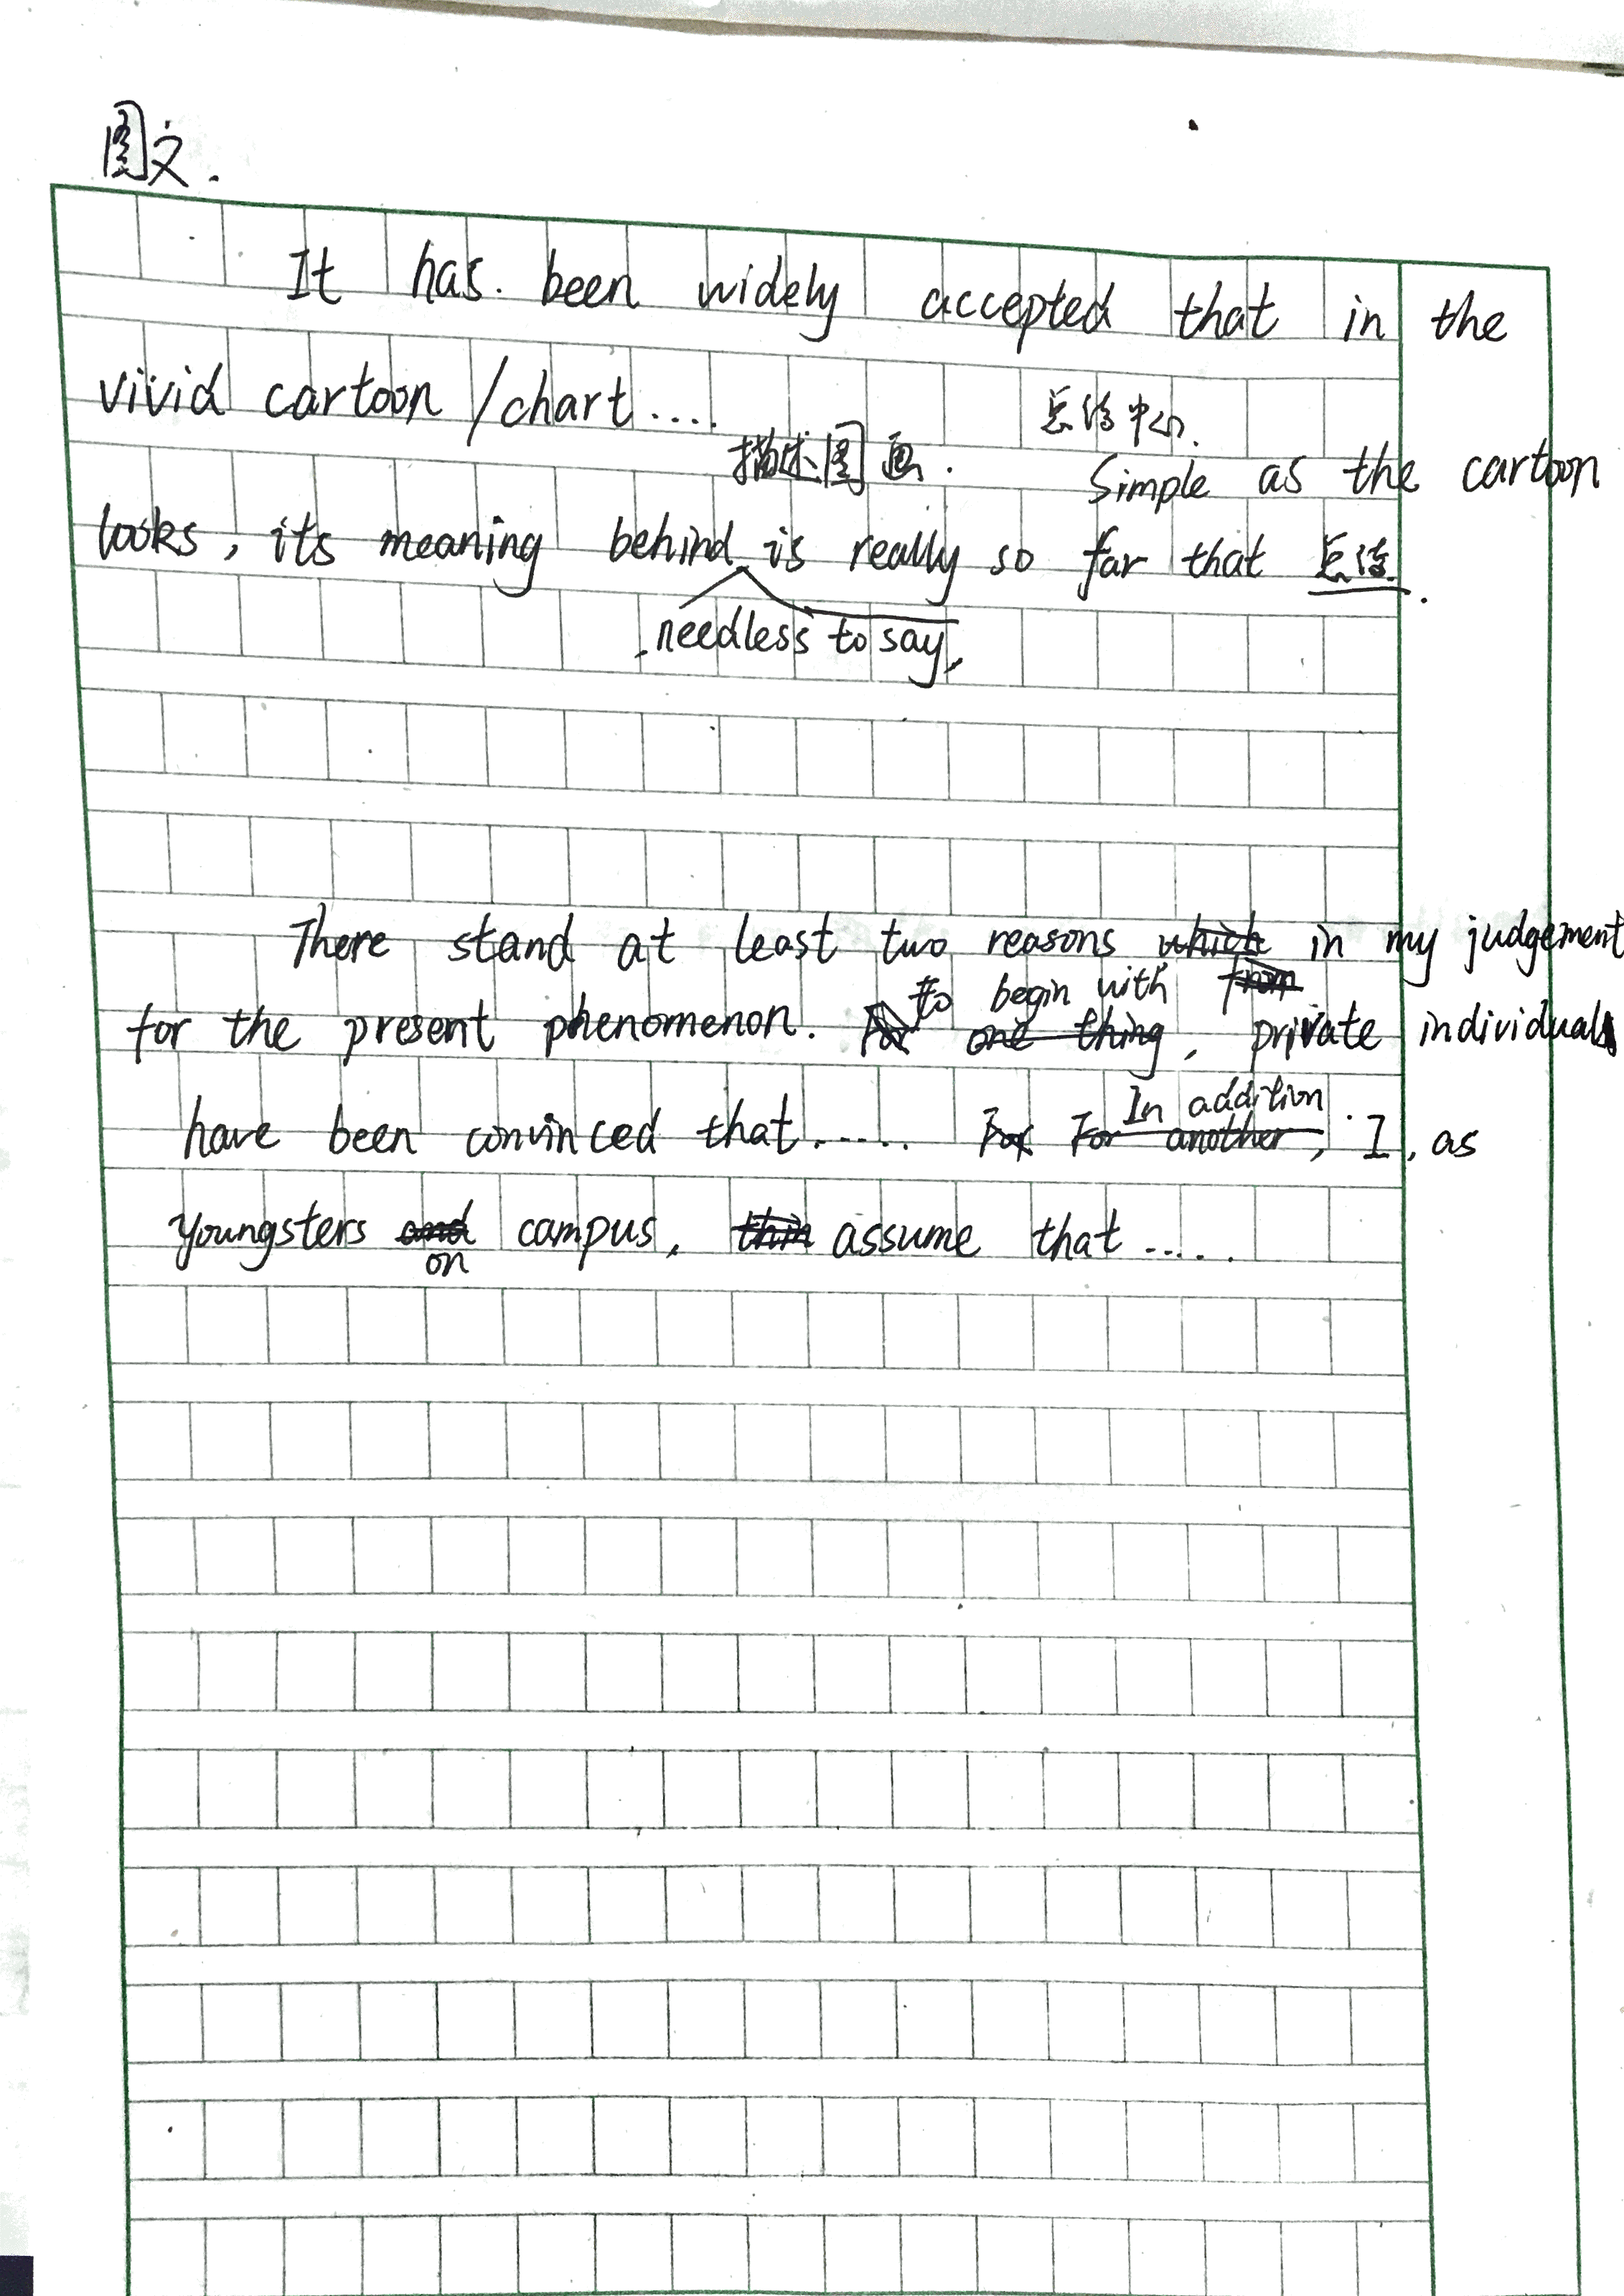 图文.
It has. been widely accepted that in the
vivid cartoon /chart....
总结中心.
描述图画.
Simple as the cartoon
looks, its meaning behind is really so far that 总结.
, needless to say,
There stand at least two reasons which in my judgement
to begin with from
for the present phenomenon. For one thing, private individuals
In addition.
have been convinced that...... For For another, I, as
youngsters and campus, assume that......
on